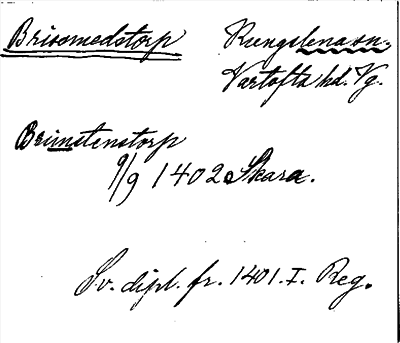 Brismedstorp
Kungslena sn.
Vartofta hd. Vg.
Brunstenstorp
9/9 1402 Skara.
Sv. dipl. fr. 1401. I. Reg.